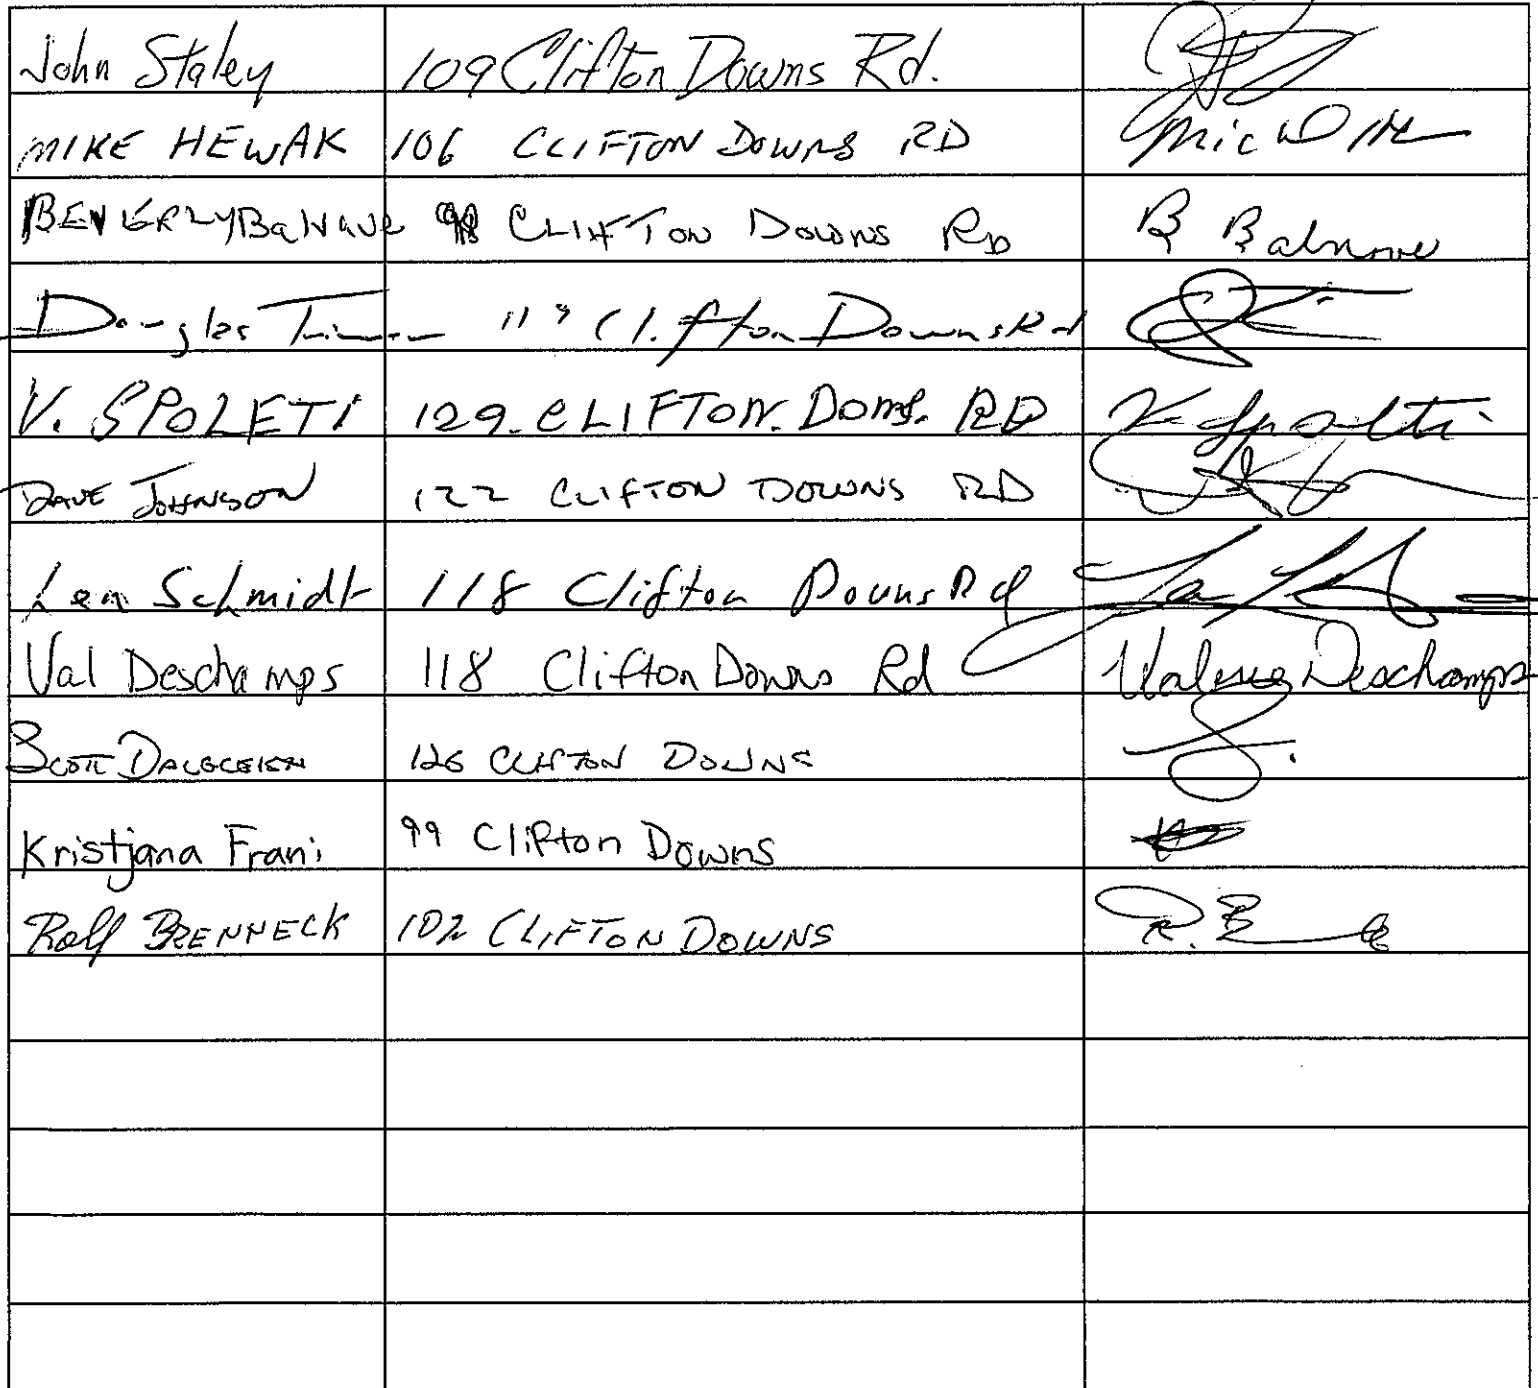 John Staley 109 Clifton Downs Rd.
MIKE HEWAK 106 CLIFTON DOWNS RD
BEVERLY Balnave 98 CLIFTON DOWNS RD B Balnave
Douglas Clifton Downs Rd
V. SPOLETI 129. CLIFTON. DOMS. RD V Spoleti
DAVE JOHNSON 122 CLIFTON DOWNS RD
Len Schmidt 118 Clifton Downs Rd
Val Deschamps 118 Clifton Downs Rd Valerie Deschamps
SCOTT 126 CLIFTON DOWNS
Kristjana Frani 99 Clifton Downs
Rolf BRENNECK 102 CLIFTON DOWNS